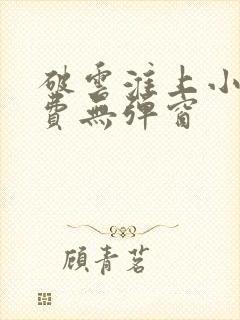 破雲淮上小
費無彈窗
顧青茗